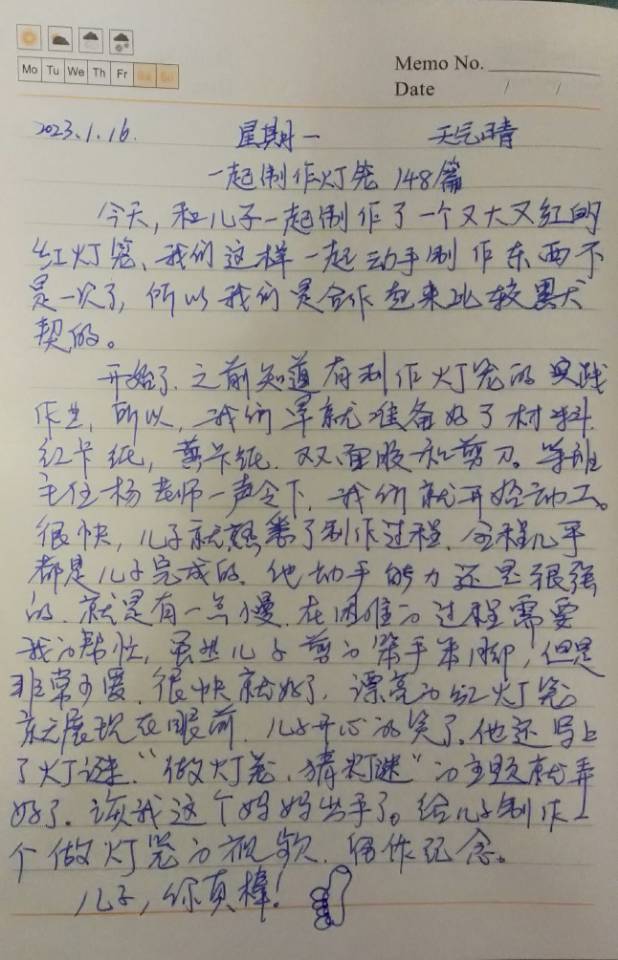 Mo Tu We Th Fr Sa Su
Memo No.
Date / /
2023.1.16. 星期一 天气晴
一起制作灯笼 148篇
今天,和儿子一起制作了一个又大又红的
红灯笼、我们这样一起动手制作东西不
是一次了,所以我们是合作起来比较默
契的。
开始了.之前知道有制作灯笼的实践
作业,所以,我们早就准备好了材料.
红卡纸,黄卡纸.双面胶和剪刀。等班
主任杨老师一声令下,我们就开始动工。
很快,儿子就熟悉了制作过程.全程几乎
都是儿子完成的.他动手能力还是很强
的.就是有一点慢.在困难的过程需要
我的帮忙,虽然儿子剪的笨手笨脚,但是
非常可爱.很快就好了,漂亮的红灯笼
就展现在眼前.儿子开心的笑了.他还写上
了灯谜.“做灯笼.猜灯谜”的主题就弄
好了.该我这个妈妈出手了。给儿子制作一
个做灯笼的视频.留作纪念。
儿子,你真棒!